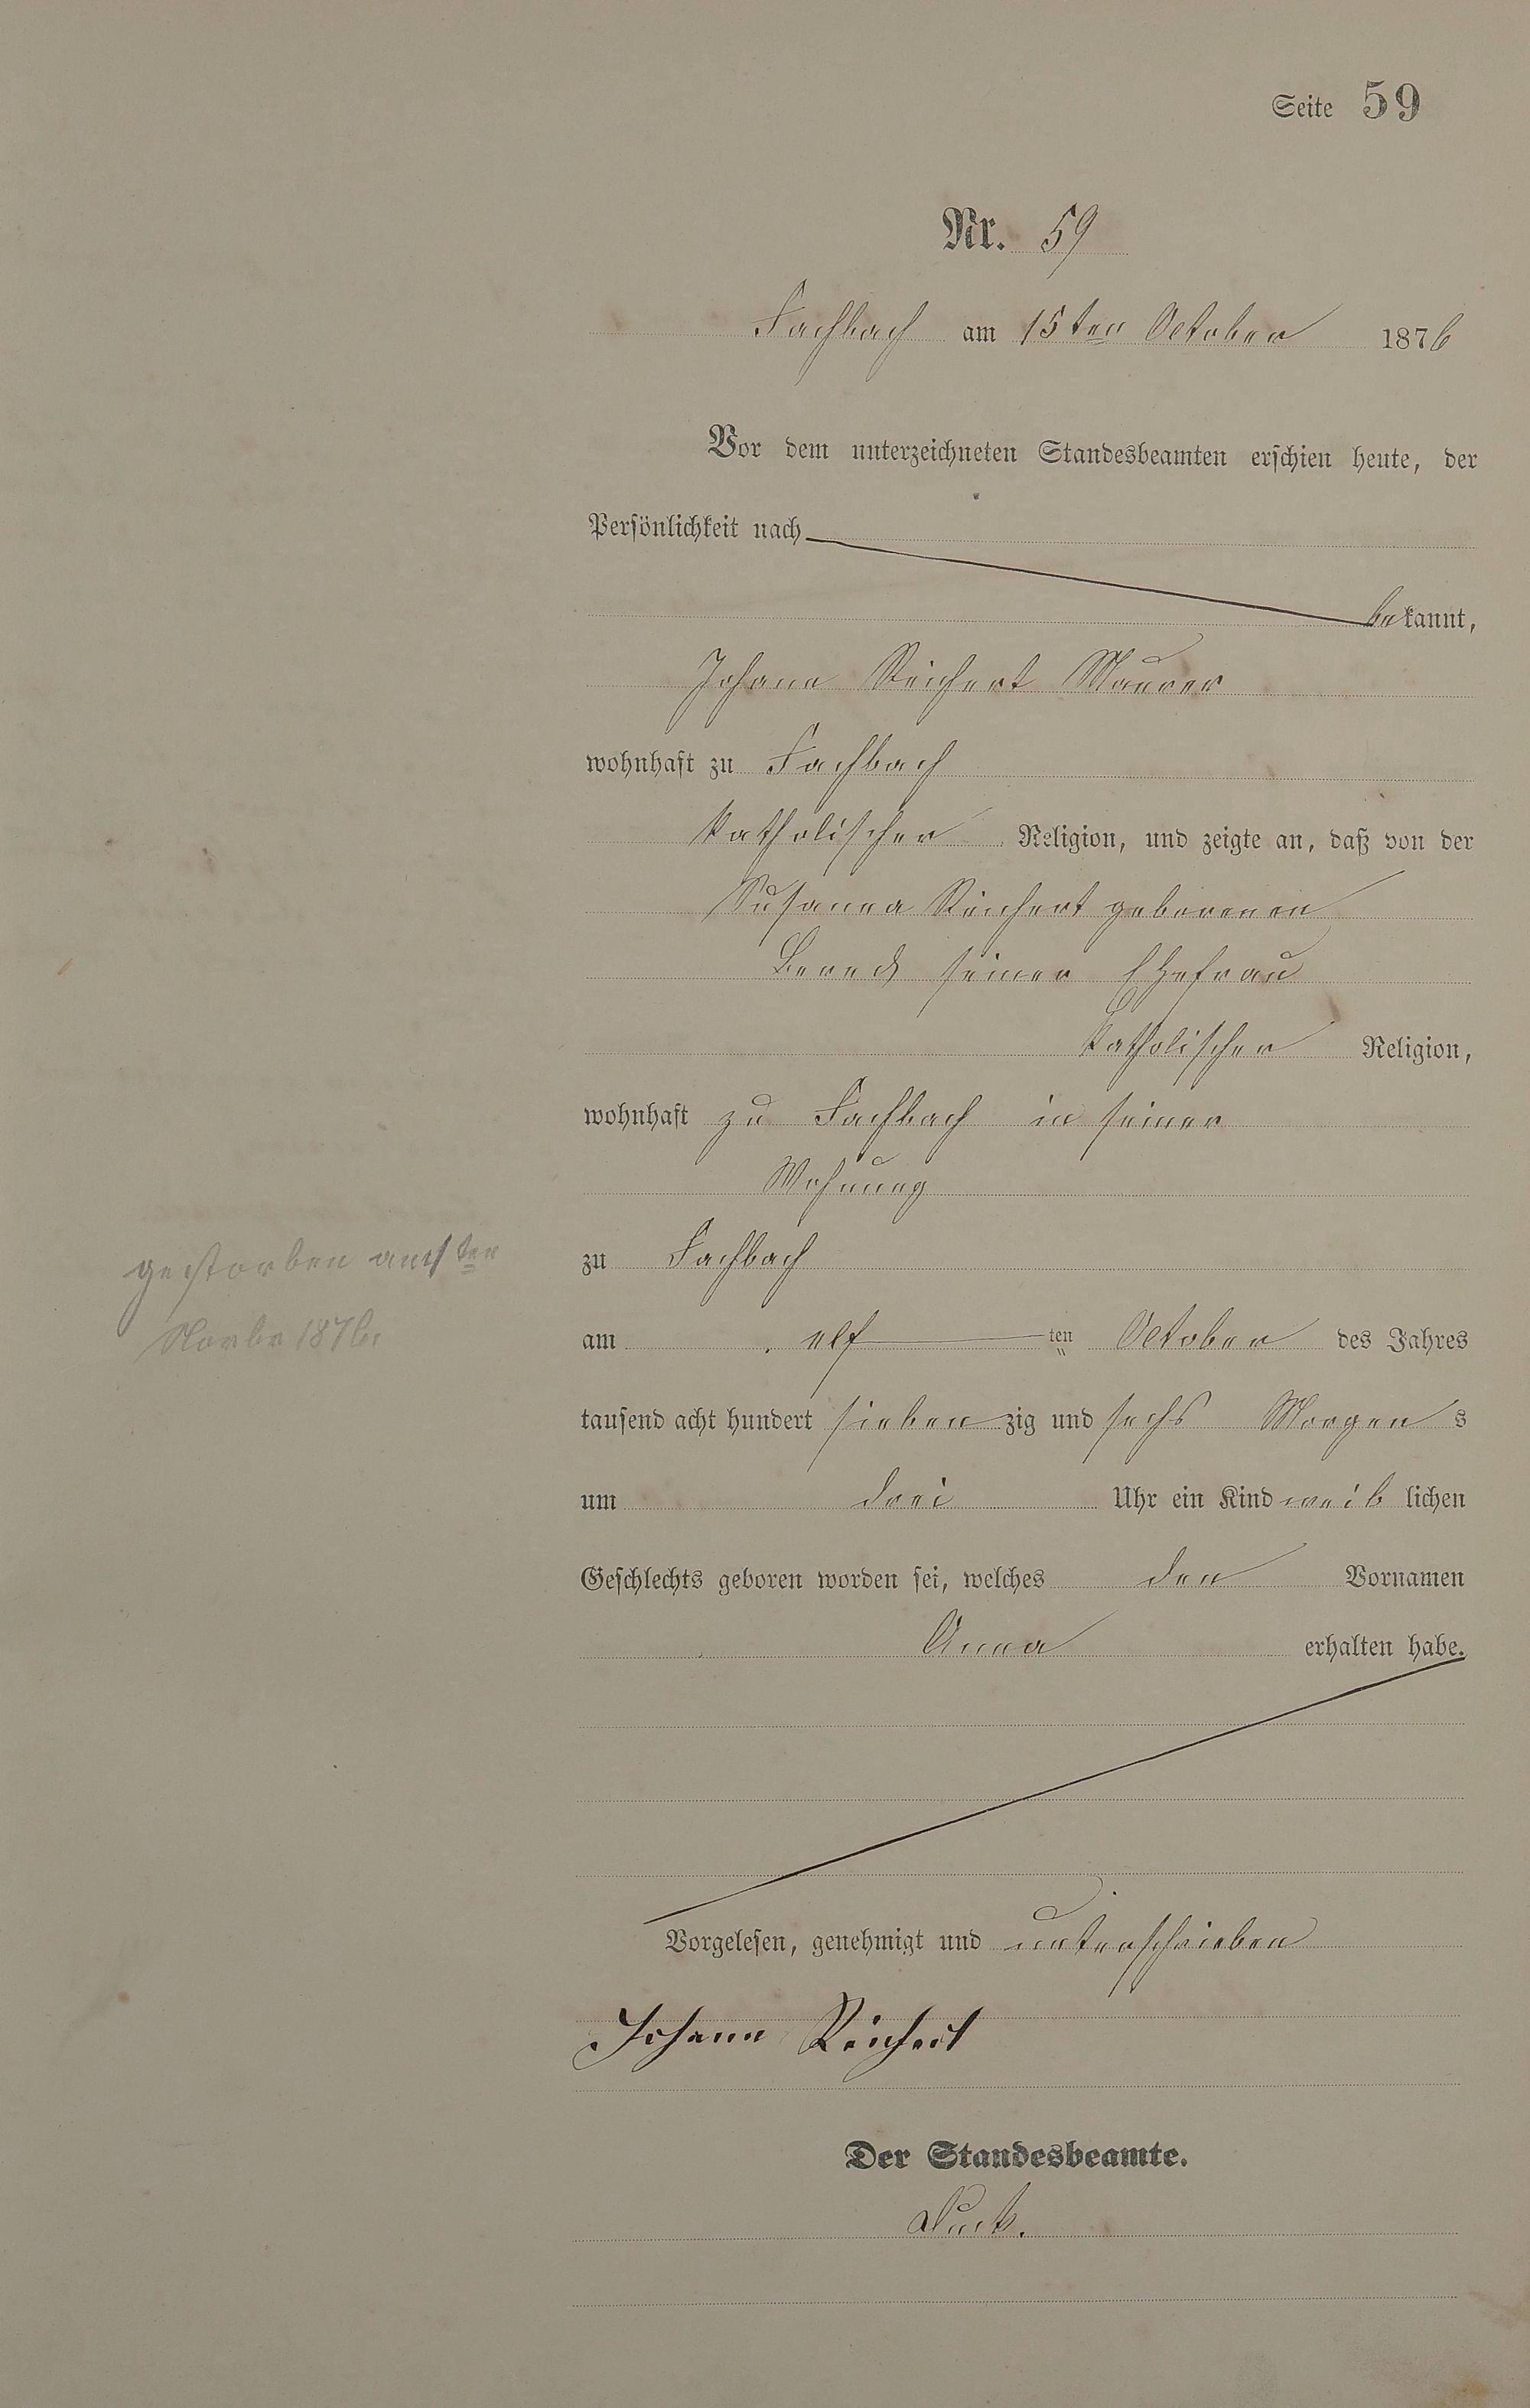 Seite 59
Nr. 59
Fachbach am 15ten October 1876
Vor dem unterzeichneten Standesbeamten erschien heute, der
Persönlichkeit nach
bekannt,
Johann Reichert Maurer
wohnhaft zu Fachbach
katholischer Religion, und zeigte an, daß von der
Susanna Reichert geborenen
seiner Ehefrau
katholischer Religion,
wohnhaft zu Fachbach in seiner
Wohnung
zu Fachbach
gestorben am
Novbr 1876.
am elf ten October des Jahres
tausend acht hundert siebenzig und sechs Morgens
um drei Uhr ein Kind weiblichen
Geschlechts geboren worden sei, welches den Vornamen
Anna erhalten habe.
Vorgelesen, genehmigt und unterschrieben
Johann Reichert
Der Standesbeamte.